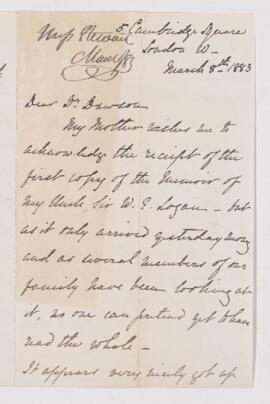 Miss Stewart
5 Cambridge Square
London W-
March 8th 1883
Dear Dr Dawson
My Mother wishes me to
acknowledge the receipt of the
first copy of the Memoir of
my Uncle, Sir W. E. Logan - but
as it only arrived yesterday morng
and as several members of our
family have been looking at
it, no one can pretend yet to have
read the whole -
It appears very nicely got up